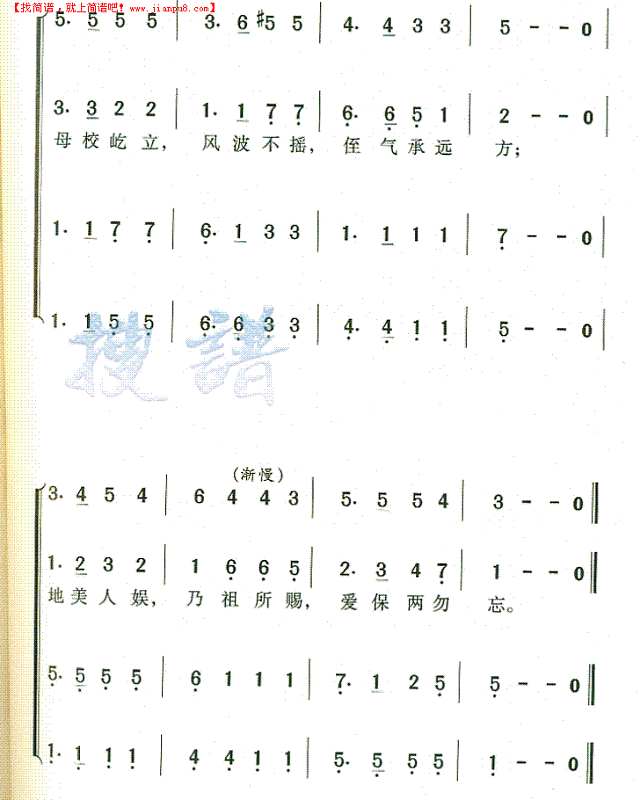 【找简谱,就上简谱吧!www.jianpu8.com】
5. 5 5 5 | 3. 6 #5 5 | 4. 4 3 3 | 5 - - 0 |
3. 3 2 2 | 1. 1 7 7 | 6. 6 5 1 | 2 - - 0 |
母校屹立, 风波不摇, 侄气承远 方;
1. 1 7 7 | 6. 1 3 3 | 1. 1 1 1 | 7 - - 0 |
1. 1 5 5 | 6. 6 3 3 | 4. 4 1 1 | 5 - - 0 |
搜谱
(渐慢)
3. 4 5 4 | 6 4 4 3 | 5. 5 5 4 | 3 - - 0 ‖
1. 2 3 2 | 1 6 6 5 | 2. 3 4 7 | 1 - - 0 ‖
地美人娱, 乃祖所赐, 爱保两勿 忘。
5. 5 5 5 | 6 1 1 1 | 7. 1 2 5 | 5 - - 0 ‖
1. 1 1 1 | 4 4 1 1 | 5. 5 5 5 | 1 - - 0 ‖